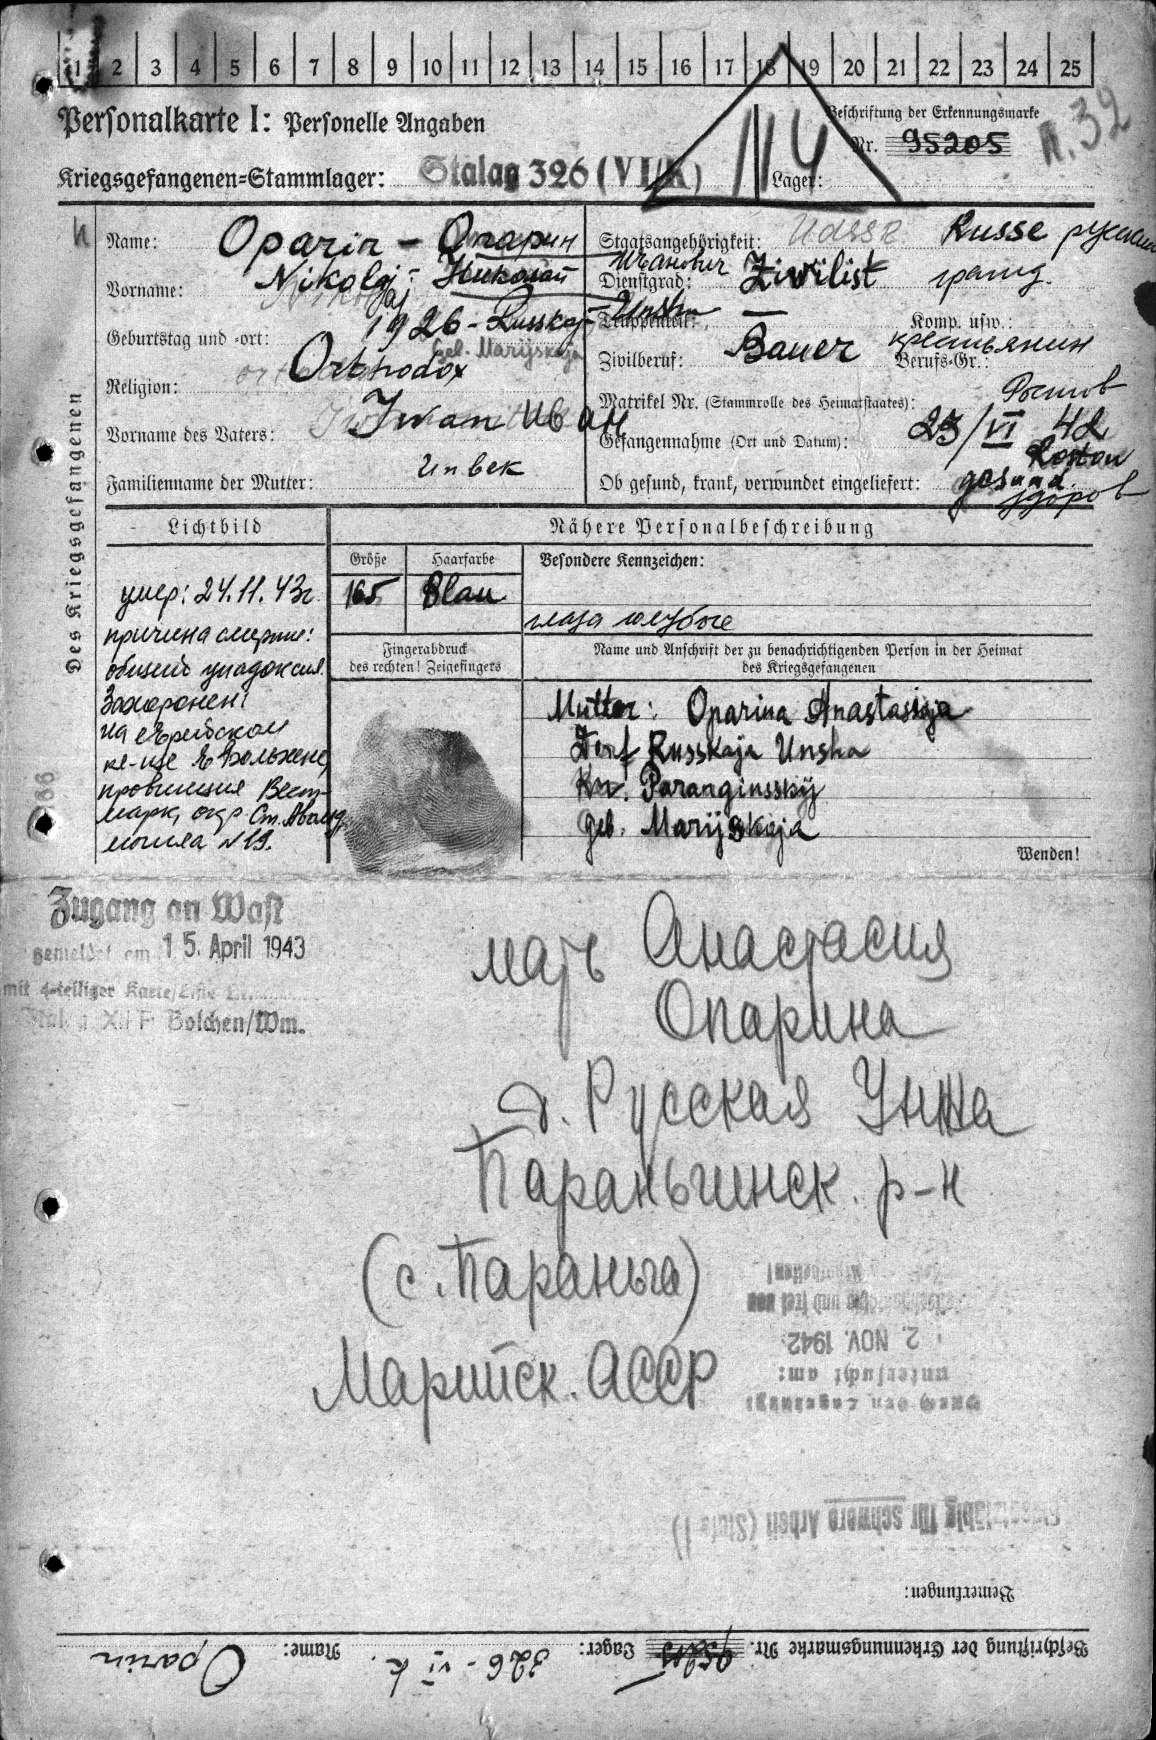 1 2 3 4 5 6 7 8 9 10 11 12 13 14 15 16 17 18 19 20 21 22 23 24 25
Personalkarte I: Personelle Angaben
Beschriftung der Erkennungsmarke
Nr. 95205
Kriegsgefangenen-Stammlager: Stalag 326 (VI/K)
Lager:
Des Kriegsgefangenen
Name: Oparin - Опарин
Vorname: Nikolaj - Николай Иванович
Geburtstag und -ort: 1926 - Russkaja - Unsha
geb. Marijskaja
Religion: Orthodox
Vorname des Vaters: Iwan Иван
Familienname der Mutter: Unbek
Staatsangehörigkeit: UdSSR Russe русский
Dienstgrad: Zivilist гражд.
Truppenteil: — Komp. usw.:
Zivilberuf: Bauer Berufs-Gr.: крестьянин
Matrikel Nr. (Stammrolle des Heimatstaates):
Ростов
Gefangennahme (Ort und Datum): 23/VI 42
Rostow
Ob gesund, krank, verwundet eingeliefert: gesund.
здоров
Lichtbild
умер: 24.11.43г.
причина смерти:
общий упадок сил.
Захоронен:
на еврейском
кл-ще в Больхене,
провинция Вест-
марк, окр. Ст. Авольд,
могила №19.
Nähere Personalbeschreibung
Größe Haarfarbe Besondere Kennzeichen:
165 Blau
глаза голубые
Fingerabdruck
des rechten! Zeigefingers
Name und Anschrift der zu benachrichtigenden Person in der Heimat
des Kriegsgefangenen
Mutter: Oparina Anastasija
Dorf Russkaja Unsha
Kr. Paranginsskij
geb. Marijskaja
Wenden!
Zugang an Wast
gemeldet am 15. April 1943
mit 4-teiliger Karte/Liste
Stalag XII F Bolchen/Wm.
мать Анастасия
Опарина
д. Русская Унжа
Параньгинск. р-н
(с. Параньга)
Марийск. АССР
2. NOV. 1942
untersucht am:
Einsatzfähig für schwere Arbeit (Stufe I)
Bemerkungen:
Beschriftung der Erkennungsmarke Nr. 95205 Lager: 326-VI K. Name: Oparin